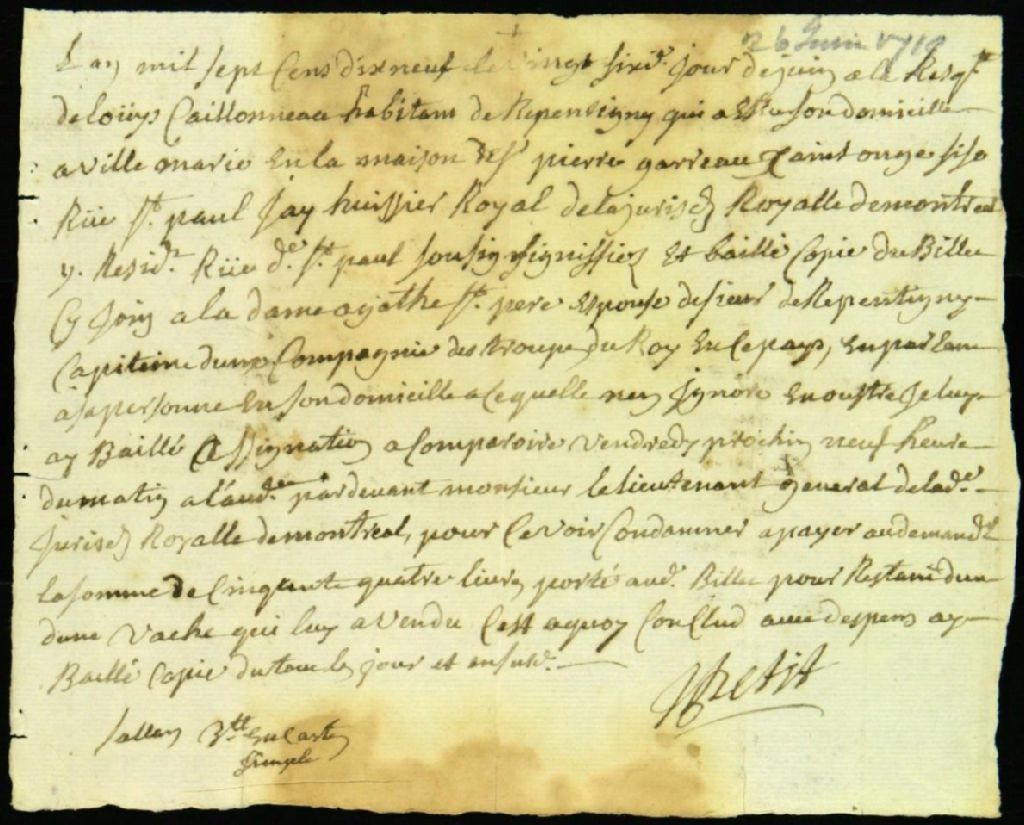 26 Juin 1719
Lan mil sept Cens dixneuf le vingt sixe. Jour de juin a la Reqte
de loüys Caillonneau habitant de Repentigny qui a Eslu son domicille
a ville marie En la maison de Sr pierre garreau Xaintonge size
Rüe St. paul Jay huissier Royal de la jurison Royalle de montreal
y. Residt. Rüe de. St. paul soussigné signiffiez Et baillé Copie du Billet
Cy Joint a la dame agathe St. pere Espouse de sieur de Repentigny
Capitaine dune Compagnie des troupe du Roy En Ce pays, En parlant
a sa personne En son domicille a Ce quelle nen Jgnore En oustre Je luy
ay Baillé Assignation a Comparoire vendredy prochin neuf heure
du matin a l'audce pardevant monsieur le lieutenant general de lade.
Jurison Royalle de montreal, pour Ce voir Condamner a payer au demandr
la somme de Cinquante quatre livres porté aud. Billet pour Restant dun
dune vache qui luy a vendu Cest a quoy Conclud avec despens ay
Baillé Copie du tout les jour et an susd.
JPetit